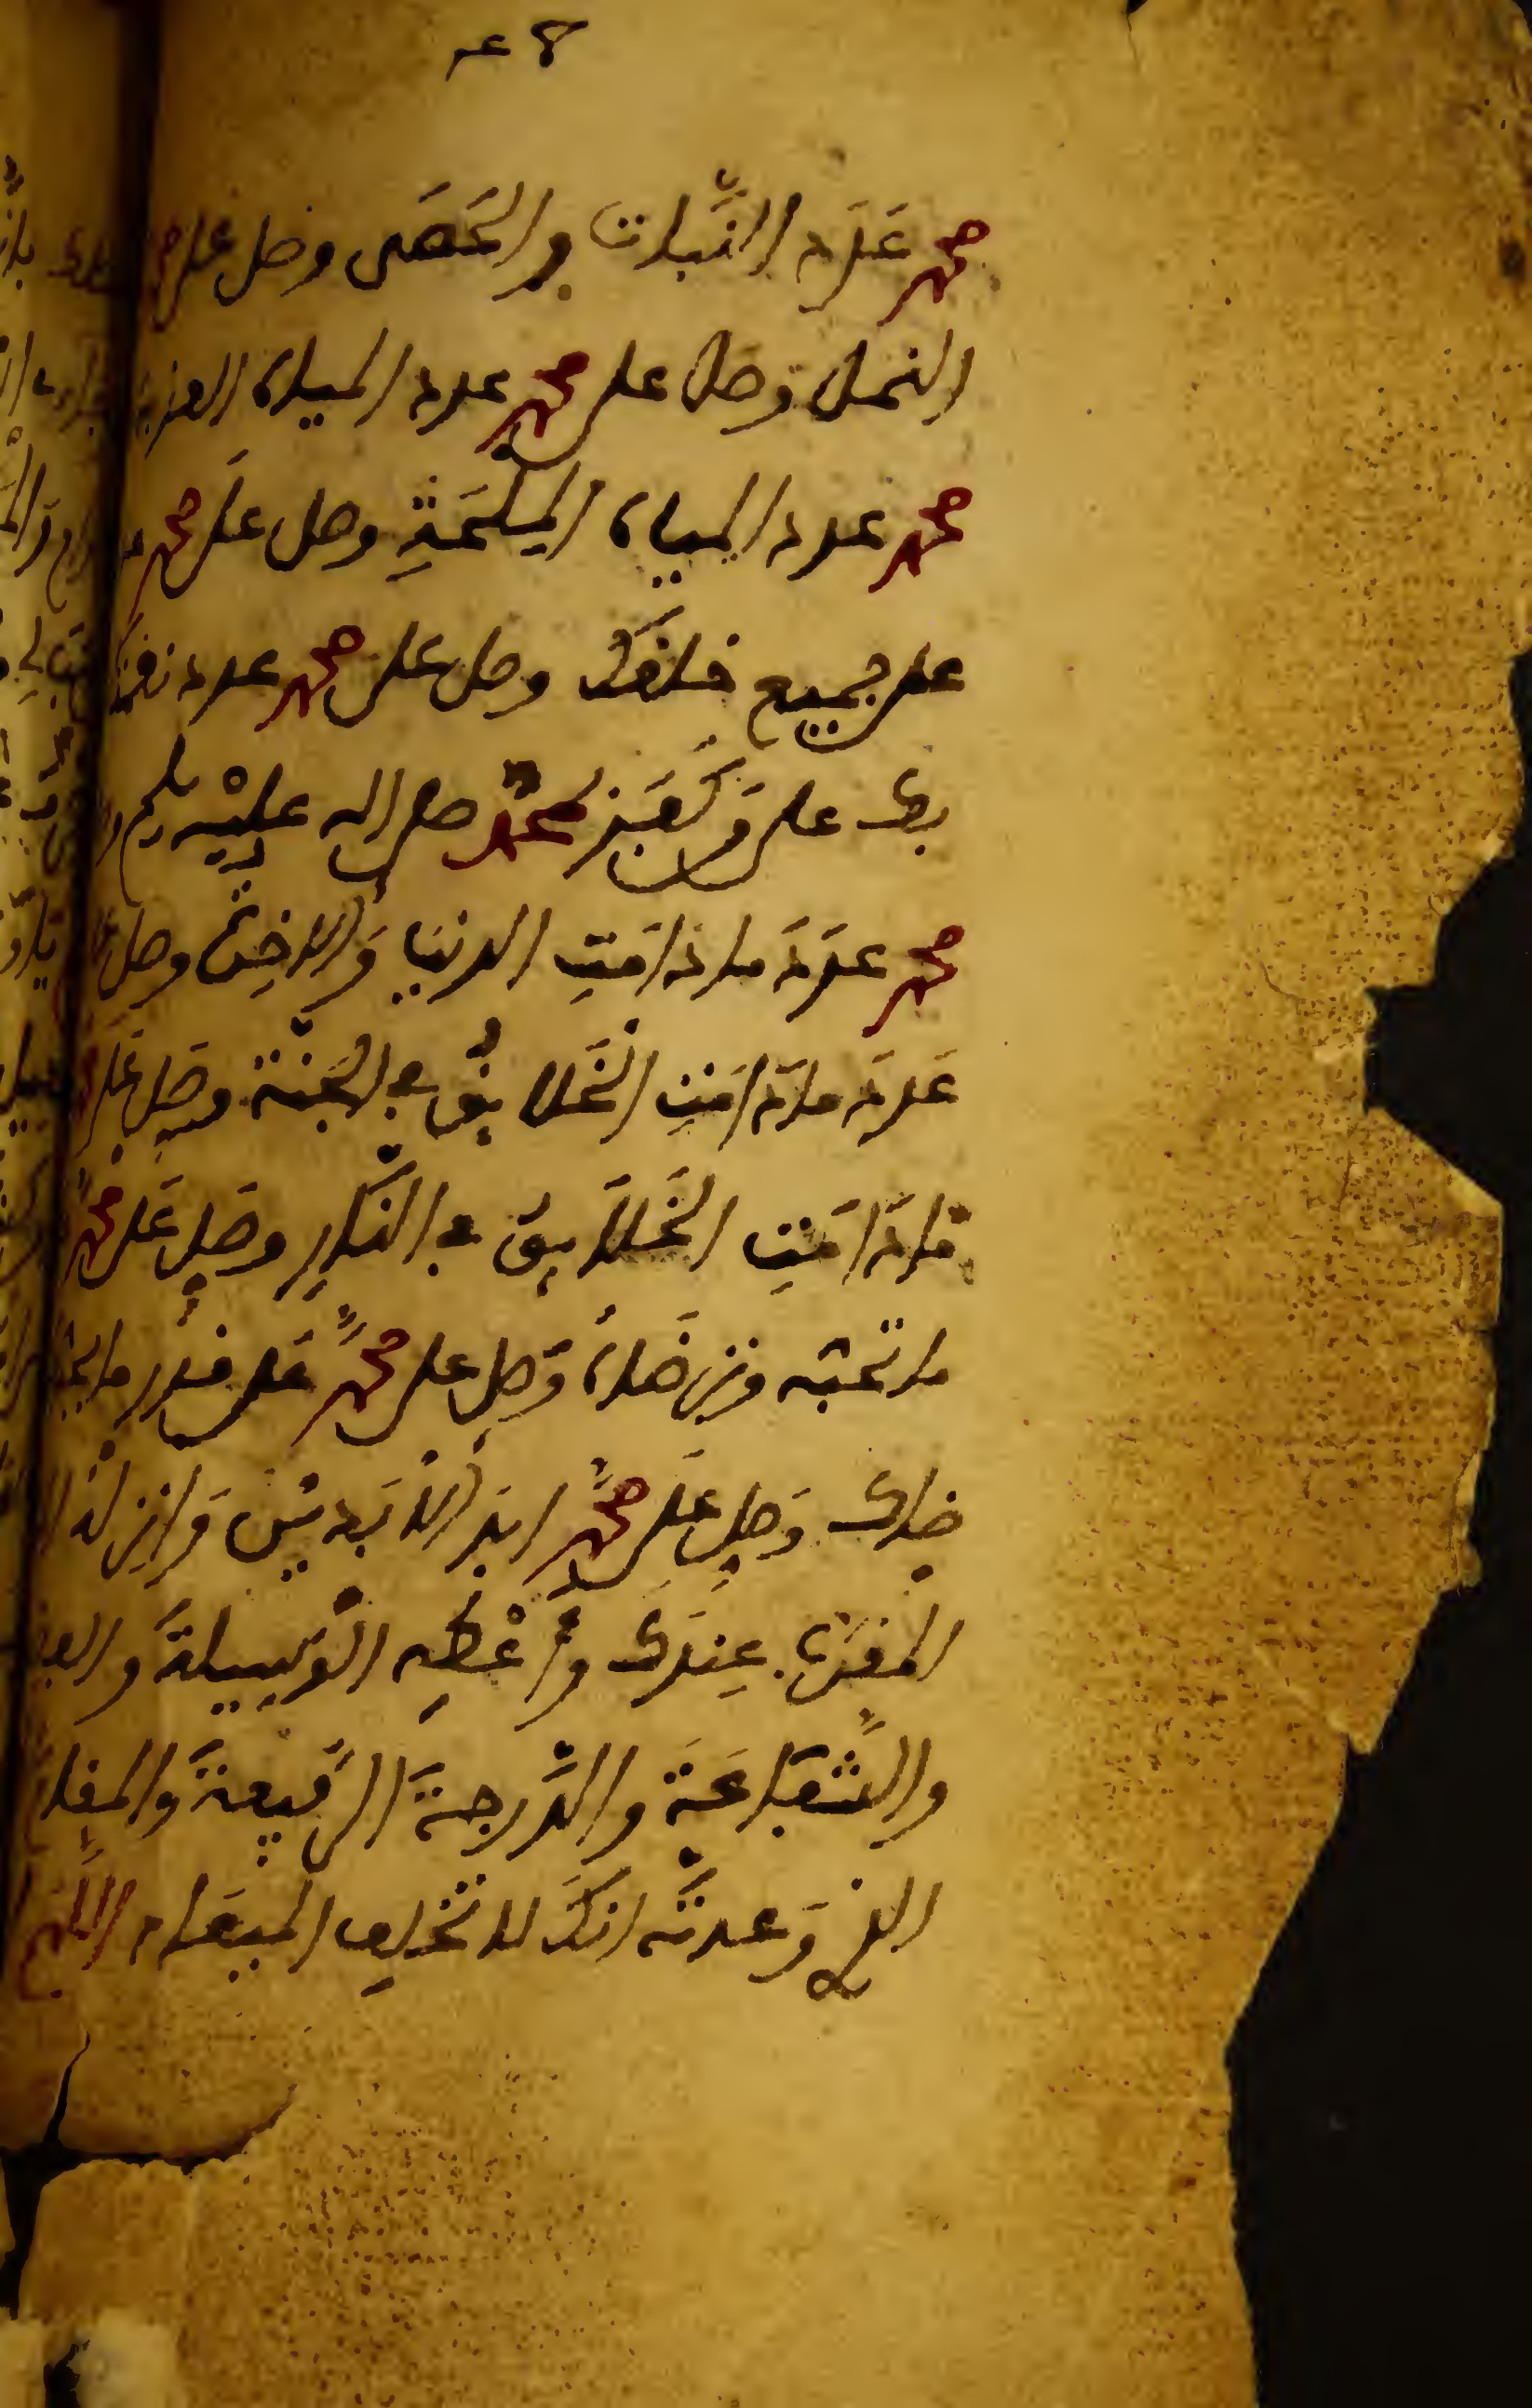 محمد عَدَد النَّبات والحَصَى وصل على
النمل وصل على محمد عدد المياه العذبة
محمد عدد المياه المِلْحَةِ وصل على محمد
على جميع خلقك وصل على محمد عدد نقمتك
بك على من كَفَر بمحمد صلى الله عليه وسلم و
محمد عدَدَ ما دامَتِ الدنيا وَالاخِرة وصل
عَدَدَ ما دَامَتِ الخَلايق في الجنة وصَلِ عَلَى
مَا دَامَتِ الخَلايق في النَّارِ وصَلِ عَلَى محمدٍ
ما تحبه وترضاه وصَلِ على محمدٍ على قدر ما يحبك
ضاك وَصَلِ عَلَى محمدٍ ابَدَ الابَديين وَانزِلْه
المقرب عِندَك وَأعْطِهِ الوَسِيلةَ والفضيلة
والشَّفَاعَةَ والدَّرجةَ الرَّفيعةَ والمقام
الذي وَعدتَه انكَ لا تخلِف الميعَاد اللَّهم